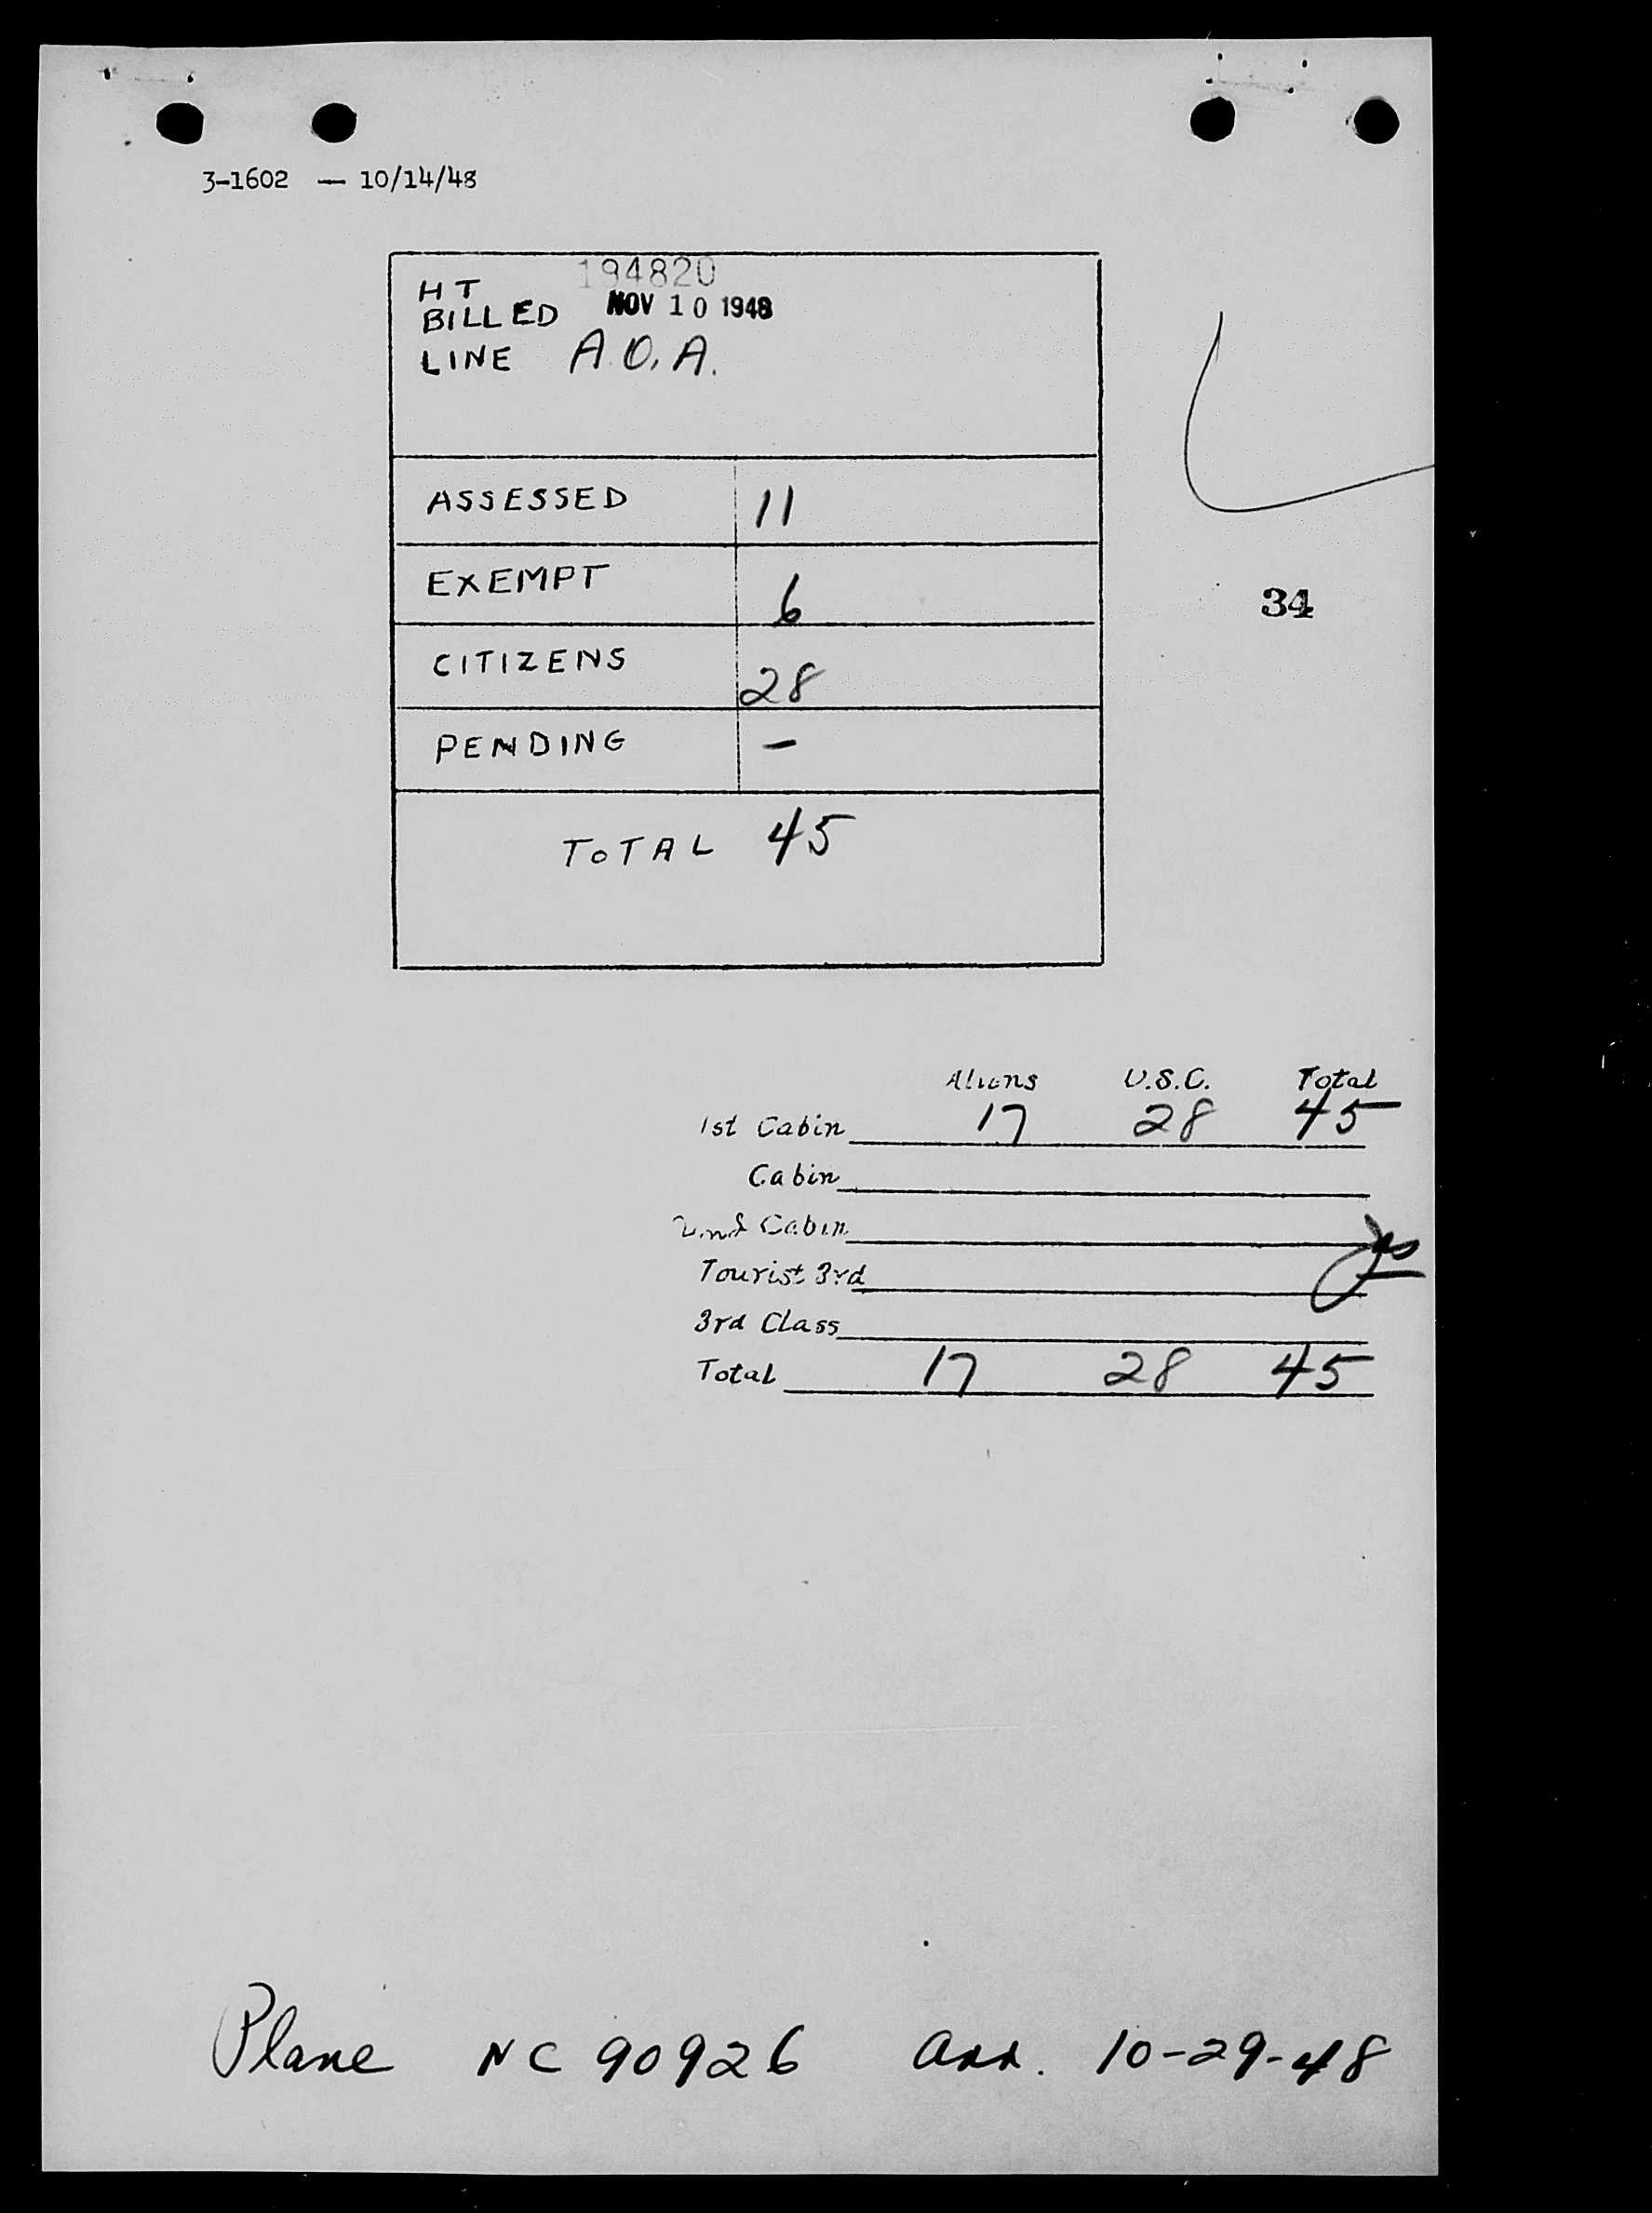 3-1602 — 10/14/48
194820
HT
BILLED NOV 10 1948
LINE A.O.A.
ASSESSED 11
EXEMPT 6
34
CITIZENS 28
PENDING –
TOTAL 45
Aliens U.S.C. Total
1st Cabin 17 28 45
Cabin
2nd Cabin
Tourist 3rd
3rd Class
Total 17 28 45
Plane NC 90926 arr. 10-29-48